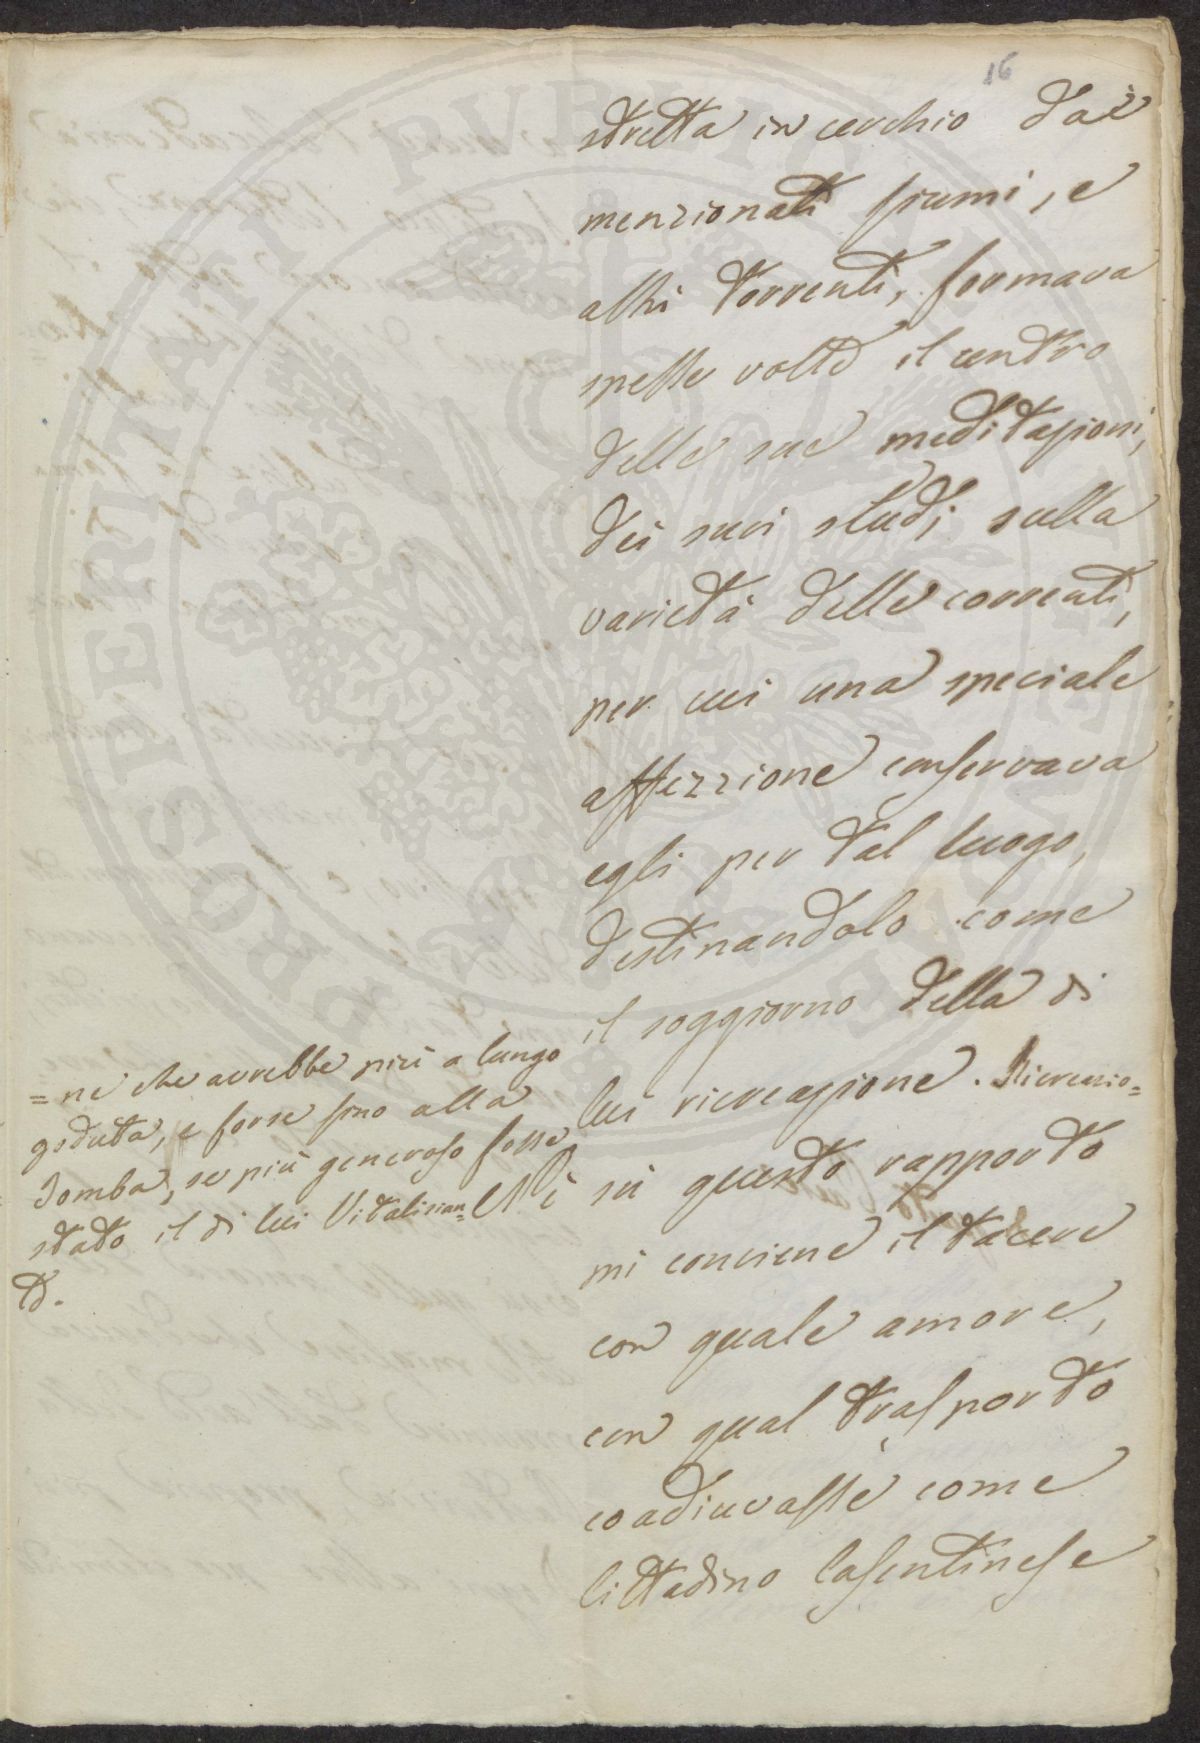 16
stretta in cerchio dai
menzionati fiumi, e
altri torrenti, formava
spesse volte il centro
delle sue meditazioni,
dei suoi studj sulla
varietà delle correnti,
per cui una speciale
affezzione conservava
egli per tal luogo,
destinandolo come
il soggiorno della di
lui ricreazione. Ricreazio=
= ne che avrebbe più a lungo
goduta, e forse fino alla
Tomba, se più generoso fosse
stato il di lui Vitalizian=
te.
Nè su questo rapporto
mi conviene il tacere
con quale amore,
con qual trasporto
coadiuvasse come
Cittadino Casentinese
PROSPERITATI PVBLICAE